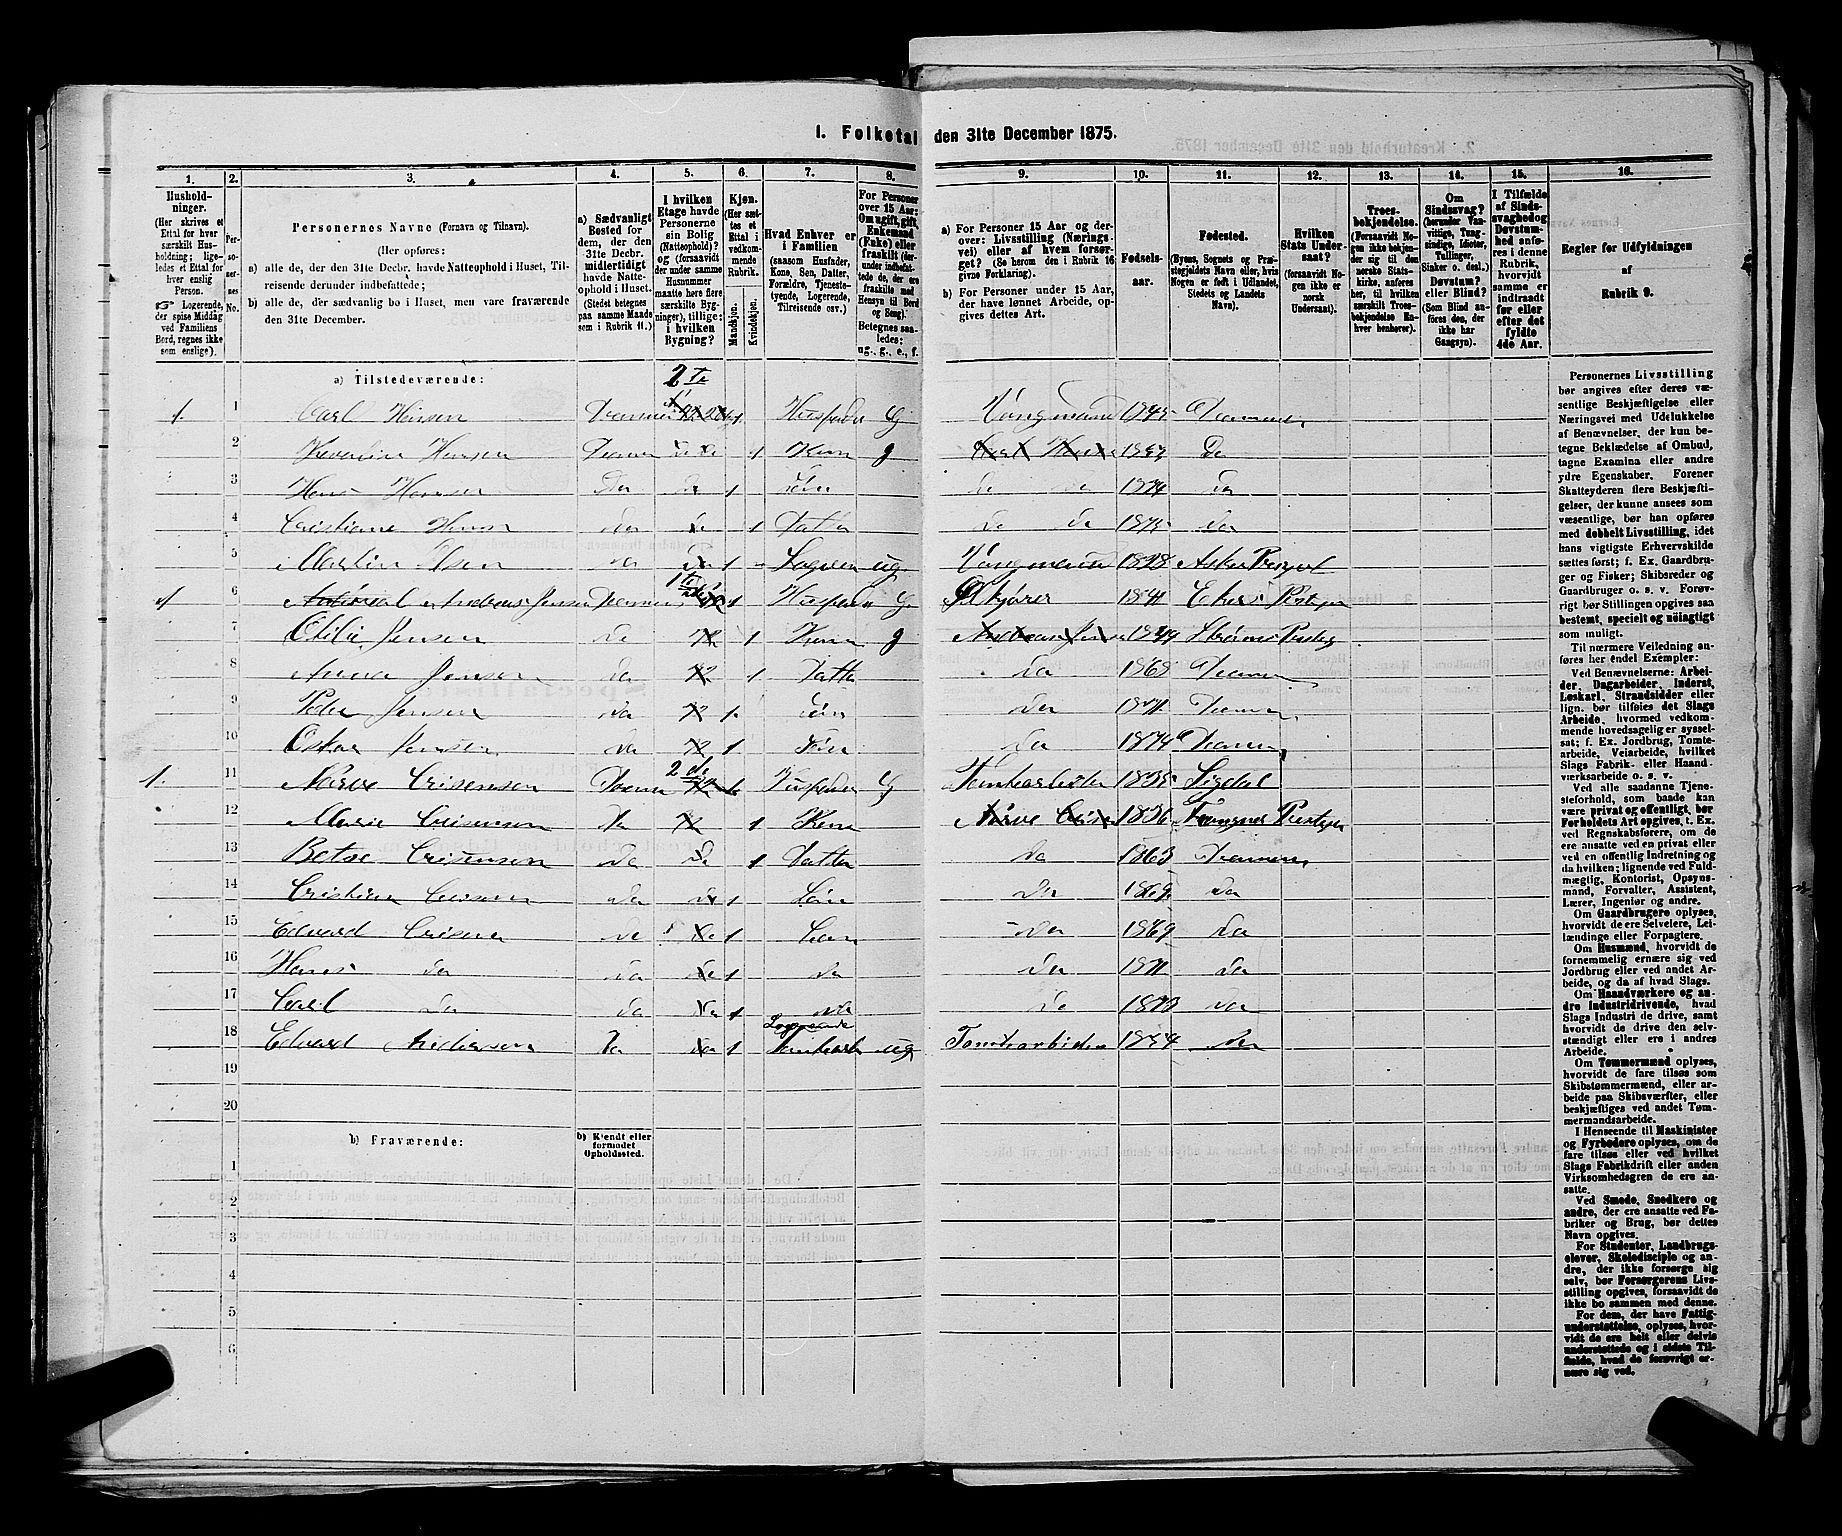 1. Folketal den 31te December 1875.
1. 2. 3. 4. 5. 6. 7. 8. 9. 10. 11. 12. 13. 14. 15. 16.
Husholdninger.
(Her skrives et
Ettal for hver
særskilt Hus-
holdning; lige-
ledes et Ettal for
hver enslig
Person.
Logerende,
der spise Middag
ved Familiens
Bord, regnes ikke
som enslige).
Per-
soner-
nes
No.
Personernes Navne (Fornavn og Tilnavn).
(Her opføres:
a) alle de, der den 31te Decbr. havde Natteophold i Huset, Til-
reisende derunder indbefattede;
b) alle de, der sædvanlig bo i Huset, men vare fraværende
den 31te December.
a) Sædvanligt
Bosted for
dem, der den
31te Decbr.
midlertidigt
havde Natte-
ophold i Huset.
(Stedet betegnes
paa samme Maade
som i Rubrik 11.)
I hvilken
Etage havde
Personerne
sin Bolig
(Natteophold)?
og (forsaavidt
der under samme
Husnummer
maatte høre flere
særskilte Byg-
ninger), tillige:
i hvilken
Bygning?
Kjøn.
(Her sæt-
tes et
Ettal i
vedkom-
mende
Rubrik.
Mandkjøn.
Kvindekjøn.
Hvad Enhver er
i Familien
(saasom Husfader,
Kone, Søn, Datter,
Forældre, Tjeneste-
tyende, Logerende,
Tilreisende osv.)
For Personer
over 15 Aar:
Om ugift, gift,
Enkemand
(Enke) eller
fraskilt (der-
under indbefat-
tede de, der ere
fraskilte med
Hensyn til Bord
og Seng).
Betegnes saa-
ledes:
ug., g., e., f.
a) For Personer 15 Aar og der-
over: Livsstilling (Nærings-
vei) eller af hvem forsør-
get? (Se herom den i Rubrik 16
givne Forklaring).
b) For Personer under 15 Aar,
der have lønnet Arbeide, op-
gives dettes Art.
Fødsels-
aar.
Fødested.
(Byens, Sognets og Præ-
stegjeldets Navn eller, hvis
Nogen er født i Udlandet,
Stedets og Landets
Navn).
Hvilken
Stats Under-
saat?
(forsaavidt No-
gen ikke er
norsk
Undersaat).
Troes-
bekjendelse.
(Forsaavidt No-
gen ikke bekjen-
der sig til den
norske Stats-
kirke, anføres
her, til hvilken
særskilt Troes-
bekjendelse En-
hver henhører).
Om
Sindssvag?
(herunder Van-
vittige, Tung-
sindige, Idioter,
Tullinger,
Sinker o. desl.)
Døvstum?
eller Blind?
(Som Blind an-
føres den, der
ikke har
Gangsyn).
I Tilfælde
af Sinds-
svaghed og
Døvstum-
hed anfø-
res i denne
Rubrik,
hvorvidt
samme er
indtraadt
før eller
efter det
fyldte
4de Aar.
Regler for Udfyldningen
af
Rubrik 9.
a) Tilstedeværende:
1. 1 Carl Hansen Husfader G 1845 Drammen
2 Hansen 1 Kone g De
3 Hans Hansen Da Da 1 Søn de da 1874 da
4 Cristiane Hansen da de 1 Datter de da 1875 da
5 Martin Olsen da 1 ug. 1828
6 Andreas Jensen 1 Husfader G 1841
7 Otilie Jensen da 1 Kone g 1849
8 Anna Jensen da 1 Datter da 1868 Drammen
9 Peder Jensen da 1 Søn da 1871 Drammen
10 Oskar Jensen da 1 Søn da 1874 Drammen
1. 11 Crisensen Drammen 1 Husfader G Tomtearbeider 1835 Sigdal
12 Marie Crisensen Da 1 Kone 1836
13 Betse Crisensen da 1 Datter da 1863 Drammen
14 Cristian Crisensen da 1 Søn da da
15 Edvard da 1 Søn da 1869 da
16 Hans da da 1 da da 1871 da
17 Carl da da da 1 da de 1873 da
18 Edvard Andersen Da da 1 Logerende ug Tomtearbeider 1854 da
19
20
b) Fraværende:
b) Kjendt eller
formodet
Opholdssted.
1
2
3
4
5
6
Personernes Livsstilling
bør angives efter deres væ-
sentlige Beskjæftigelse eller
Næringsvei med Udelukkelse
af Benævnelser, der kun be-
tegne Beklædelse af Ombud,
tagne Examina eller andre
ydre Egenskaber. Forener
Skatteyderen flere Beskjæfti-
gelser, der kunne ansees som
væsentlige, bør han opføres
med dobbelt Livsstilling, idet
hans vigtigste Erhvervskilde
sættes først; f. Ex. Gaardbru-
ger og Fisker; Skibsreder og
Gaardbruger o. s. v. Forøv-
rigt bør Stillingen opgives saa
bestemt, specielt og nöiagtigt
som muligt.
Til nærmere Veiledning an-
føres her endel Exempler:
Ved Benævnelserne: Arbei-
der, Dagarbeider, Inderst,
Løskarl, Strandsidder eller
lign. bør tilføies det Slags
Arbeide, hvormed vedkom-
mende hovedsagelig er syssel-
sat; f. Ex. Jordbrug, Tomte-
arbeide, Veiarbeide, hvilket
Slags Fabrik- eller Haand-
værksarbeide o. s. v.
Ved alle saadanne Tjene-
steforhold, som baade kan
være privat og offentligt, bør
Forholdets Art opgives, t. Ex.
ved Regnskabsførere, om de
ere ansatte ved en privat eller
ved en offentlig Indretning og
da hvilken; lignende ved Fuld-
mægtig, Kontorist, Opsyns-
mand, Forvalter, Assistent,
Lærer, Ingeniør og andre.
Om Gaardbrugere oplyses,
hvorvidt de ere Selveiere, Lei-
lændinge eller Forpagtere.
Om Husmænd, hvorvidt de
fornemmelig ernære sig ved
Jordbrug eller ved andet Ar-
beide, og da af hvad Slags.
Om Haandværkere og an-
dre Industridrivende, hvad
Slags Industri de drive, samt
hvorvidt de drive den selv-
stændigt eller ere i andres
Arbeide.
Om Tømmermænd oplyses,
hvorvidt de fare tilsøs som
Skibstømmermænd, eller ar-
beide paa Skibsværfter, eller
beskjæftiges ved andet Tøm-
mermandsarbeide.
I Henseende til Maskinister
og Fyrbødere oplyses, om de
fare tilsøs eller ved hvilket
Slags Fabrikdrift eller anden
Virksomhedsgren de ere an-
satte.
Ved Smede, Snedkere og
andre, der ere ansatte ved Fa-
briker og Brug, bør dettes
Navn opgives.
For Studenter, Landbrugs-
elever, Skoledisciple og an-
dre, der ikke forsørge sig
selv, bør Forsørgerens Livs-
stilling opgives, forsaavidt de
ikke bo sammen med denne.
For dem, der have Fattig-
understøttelse, oplyses, hvor-
vidt de ere helt eller delvis
understøttede og i sidste Til-
fælde, hvad de forøvrigt er-
nære sig ved.